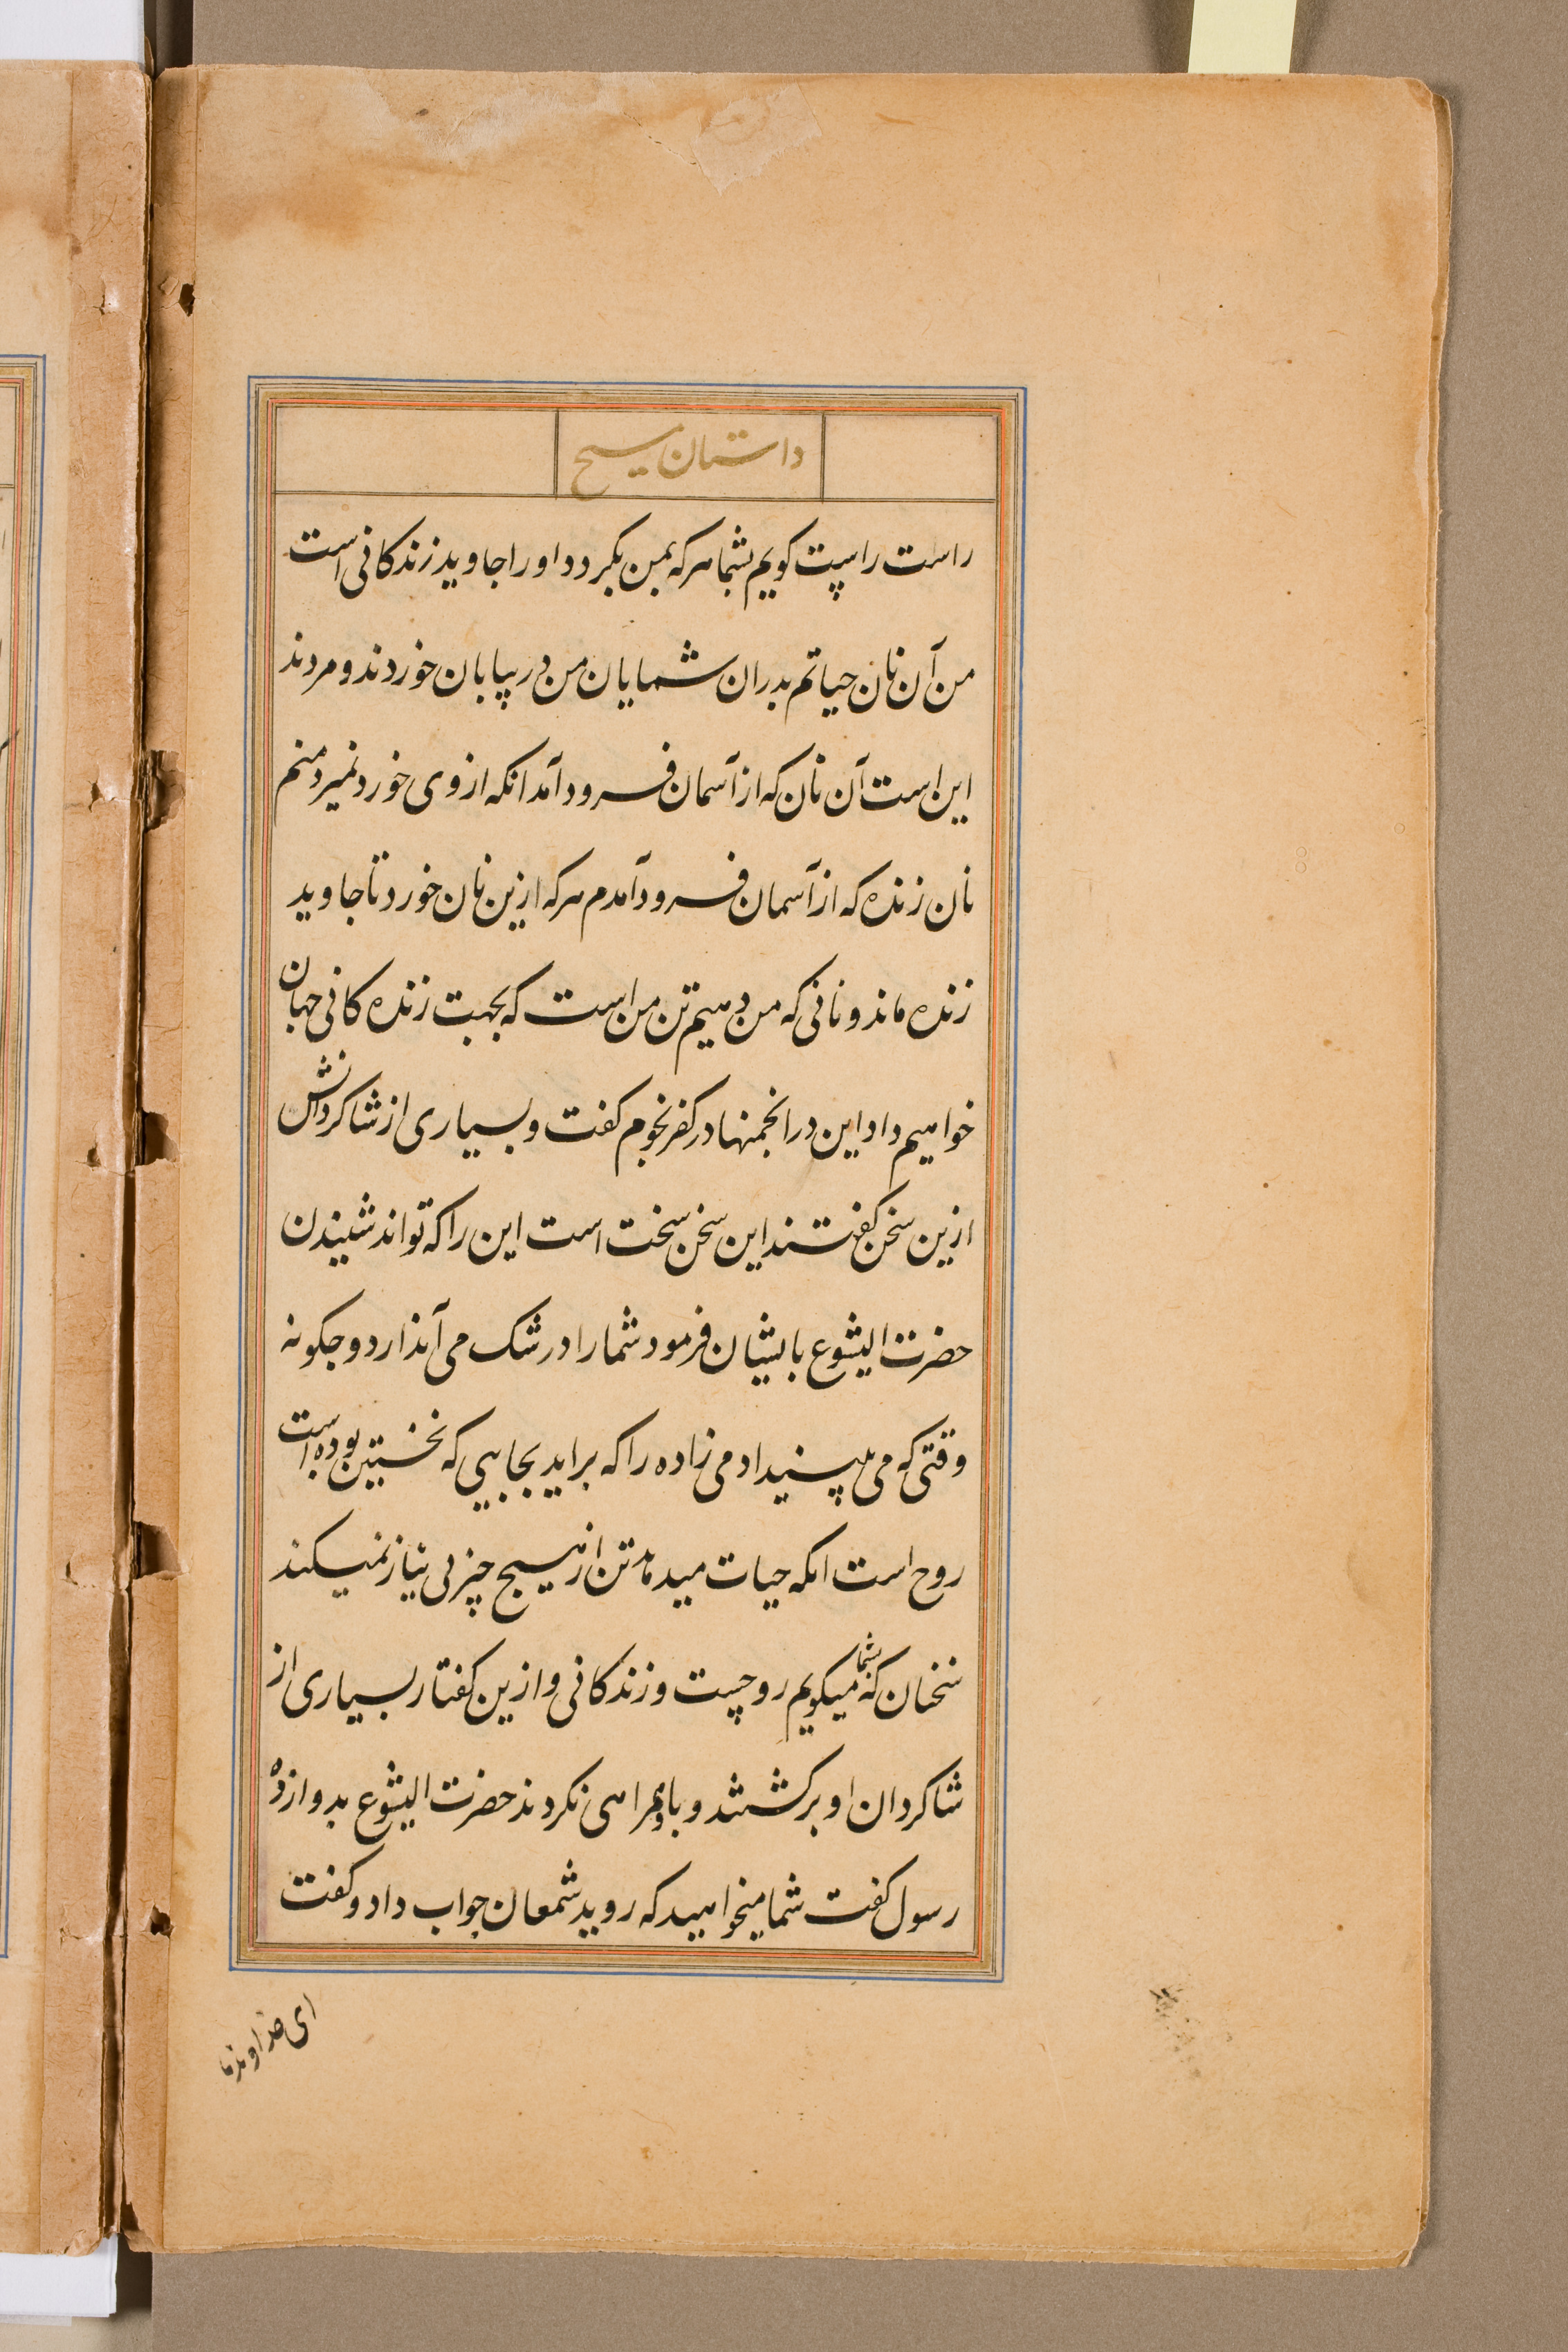 داستان مسیح
راست راست کویم بشما هرکه بمن بکرود اورا جاوید زندکانی است
من آن نان حیاتم پدران شمایان من در بیابان خوردند و مردند
این است آن نان که از آسمان فرود آمد انکه از وی خورد نمیرد منم
نان زنده که از آسمان فرود آمدم هرکه ازین نان خورد تا جاوید
زنده ماند و نانی که من دهیم تن من است که بجهت زنده کانی جهان
خواهیم داد این در انجمنها در کفرنحوم کفت و بسیاری از شاکردانش
ازین سخن کفتند این سخن سخت است این را که تواند شنیدن
حضرت ایشوع بایشان فرمود شمارا در شک می آندازد و چکونه
وقتی که می بینید ادمی زاده را که براید بجایی که نخستین بوده است
روح است انکه حیات میدهد تن از هیچ چیز بی نیاز نمیکند
سخنان که بشما میکویم روحست و زندکانی و ازین کفتار بسیاری از
شاکردان او برکشتند و با او همراهی نکردند حضرت ایشوع بدوازده
رسول کفت شما میخواهید که روید شمعان جواب داد و کفت
ای خداوند ما